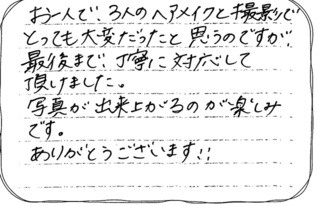 お一人で、3人のヘアメイクと撮影で
とっても大変だったと思うのですが、
最後まで、丁寧に対応して
頂けました。
写真が出来上がるのが楽しみ
です。
ありがとうございます!!